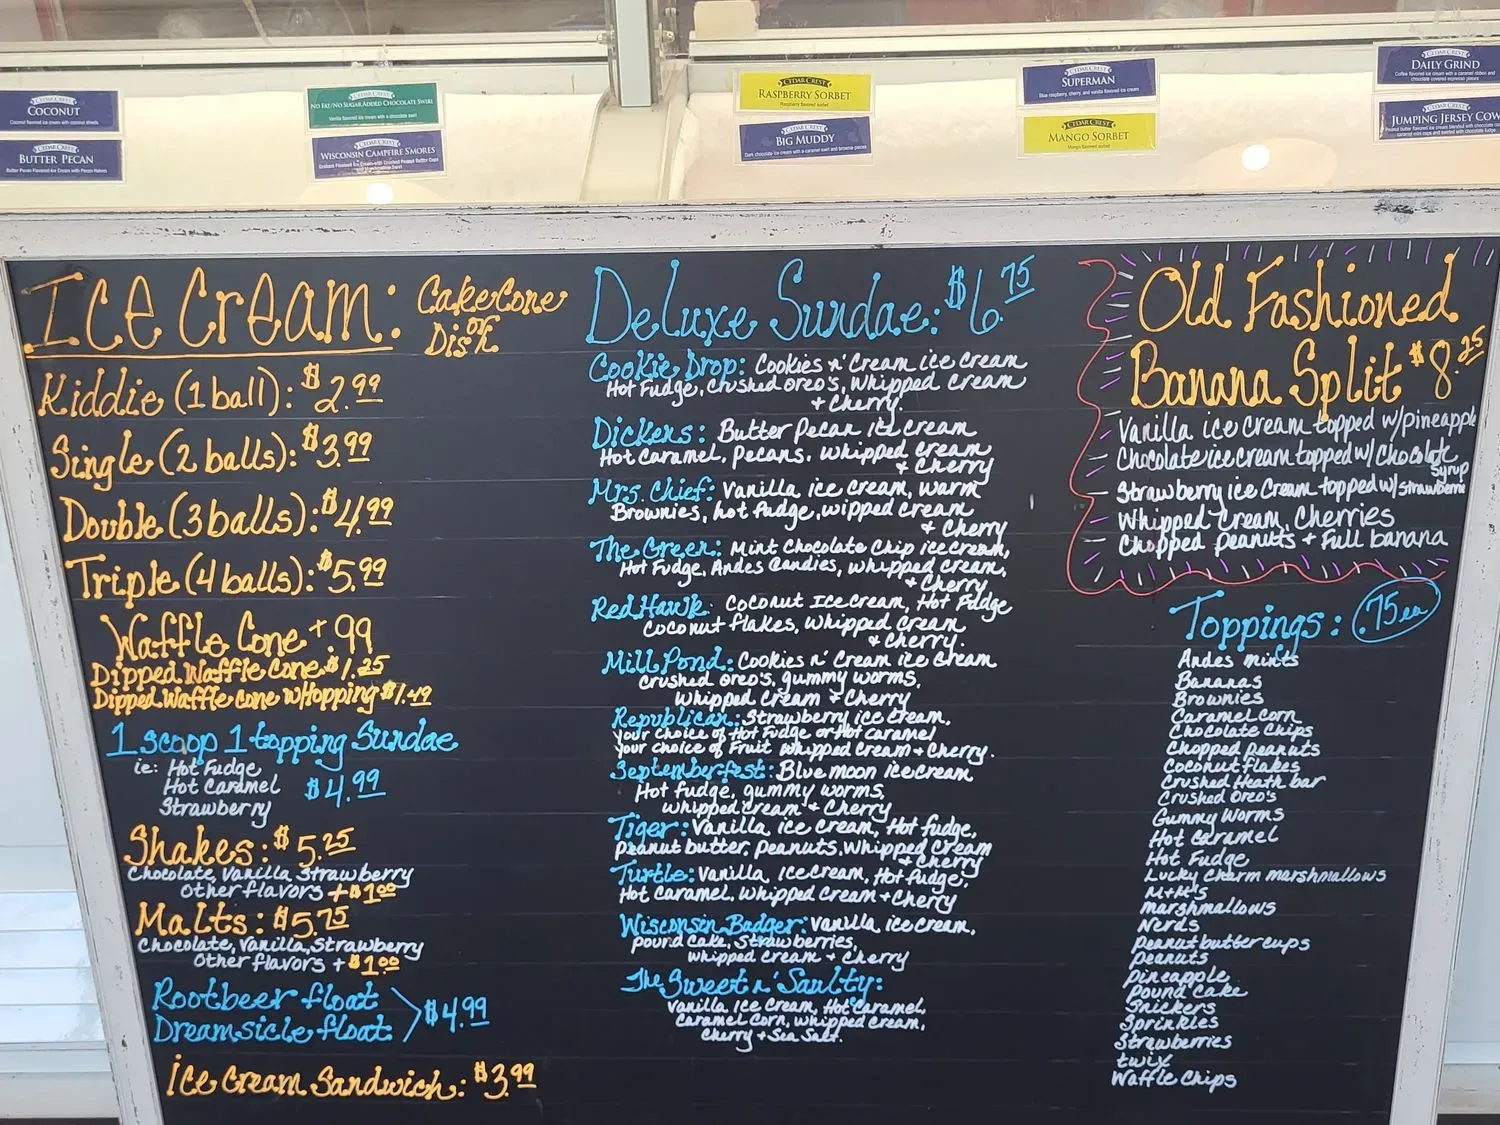 CEDAR CREST
COCONUT
Coconut flavored ice cream with coconut shreds
CEDAR CREST
BUTTER PECAN
Butter Pecan Flavored Ice Cream with Pecan Halves
CEDAR CREST
NO FAT/NO SUGAR ADDED CHOCOLATE SWIRL
Vanilla flavored ice cream with a chocolate swirl
CEDAR CREST
WISCONSIN CAMPFIRE S'MORES
CEDAR CREST
RASPBERRY SORBET
Raspberry flavored sorbet
CEDAR CREST
BIG MUDDY
Dark chocolate ice cream with a caramel swirl and brownie pieces
CEDAR CREST
SUPERMAN
Blue raspberry, cherry, and vanilla flavored ice cream
CEDAR CREST
MANGO SORBET
Mango flavored sorbet
CEDAR CREST
DAILY GRIND
Coffee flavored ice cream with a caramel ribbon and
chocolate covered espresso pieces
CEDAR CREST
JUMPING JERSEY COW
Ice Cream: Cake Cone
or
Dish
Kiddie (1 ball): $2.99
Single (2 balls): $3.99
Double (3 balls): $4.99
Triple (4 balls): $5.99
Waffle Cone + .99
Dipped Waffle Cone $1.25
Dipped Waffle Cone w/topping $1.49
1 scoop 1 topping Sundae
ie: Hot Fudge
Hot Caramel $4.99
Strawberry
Shakes: $5.25
Chocolate, Vanilla, Strawberry
Other flavors + $1.00
Malts: $5.75
Chocolate, Vanilla, Strawberry
Other flavors + $1.00
Rootbeer float
Dreamsicle float $4.99
Ice Cream Sandwich: $3.99
Deluxe Sundae: $6.75
Cookie Drop: Cookies n' Cream ice cream
Hot Fudge, Crushed Oreo's, Whipped Cream
+ Cherry.
Dickens: Butter Pecan ice cream
Hot Caramel, Pecans, Whipped cream
+ Cherry
Mrs. Chief: Vanilla ice cream, warm
Brownies, hot fudge, wipped cream
+ Cherry
The Green: Mint Chocolate Chip ice cream,
Hot Fudge, Andes Candies, Whipped cream,
+ Cherry
Red Hawk: Coconut Ice Cream, Hot Fudge
Coconut flakes, Whipped cream
+ Cherry.
Mill Pond: Cookies n' Cream ice cream
Crushed oreo's, gummy worms,
Whipped Cream + Cherry
Republican: Strawberry ice cream,
your choice of Hot Fudge or Hot Caramel
your choice of Fruit Whipped Cream + Cherry.
Septemberfest: Blue moon ice cream
Hot fudge, gummy worms,
Whipped Cream + Cherry
Tiger: Vanilla ice cream, Hot fudge,
Peanut butter, Peanuts, Whipped Cream
+ Cherry
Turtle: Vanilla, ice cream, Hot fudge,
Hot Caramel, Whipped Cream + Cherry
Wisconsin Badger: Vanilla ice cream,
pound cake, Strawberries,
Whipped cream + Cherry
The Sweet n' Saulty:
Vanilla Ice Cream, Hot Caramel,
Caramel Corn, Whipped Cream,
Cherry + Sea Salt.
Old Fashioned
Banana Split $8.25
Vanilla ice cream topped w/pineapple
Chocolate ice cream topped w/ chocolate
syrup
Strawberry ice cream topped w/ strawberries
Whipped Cream, Cherries
Chopped peanuts + full banana
Toppings: .75 ea
Andes mints
Bananas
Brownies
Caramel corn
Chocolate Chips
Chopped Peanuts
Coconut flakes
Crushed Heath bar
Crushed Oreo's
Gummy Worms
Hot Caramel
Hot Fudge
Lucky Charm marshmallows
M+M's
Marshmallows
Nerds
Peanut butter cups
Peanuts
Pineapple
Pound Cake
Snickers
Sprinkles
Strawberries
Twix
Waffle Chips